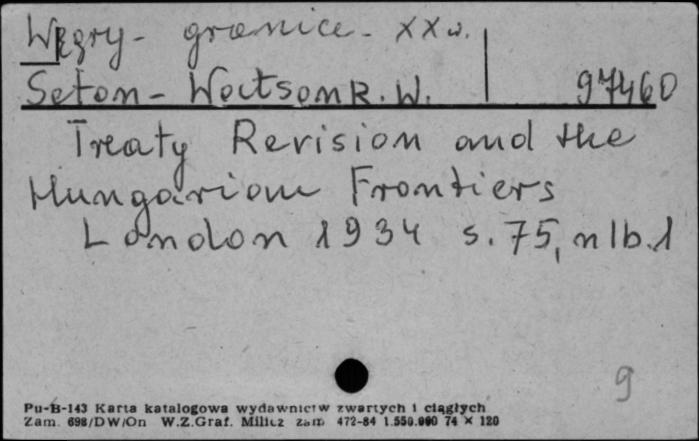 Węgry - granice - XX w.
Seton - Watson R. W. 97460
Treaty Revision and the
Hungarian Frontiers
London 1934 s. 75, nlb. 1
9
Pu-B-143 Karta katalogowa wydawnictw zwartych i ciągłych
Zam. 698/DW/On W.Z.Graf. Milicz zam 472-84 1.550.000 74 × 120